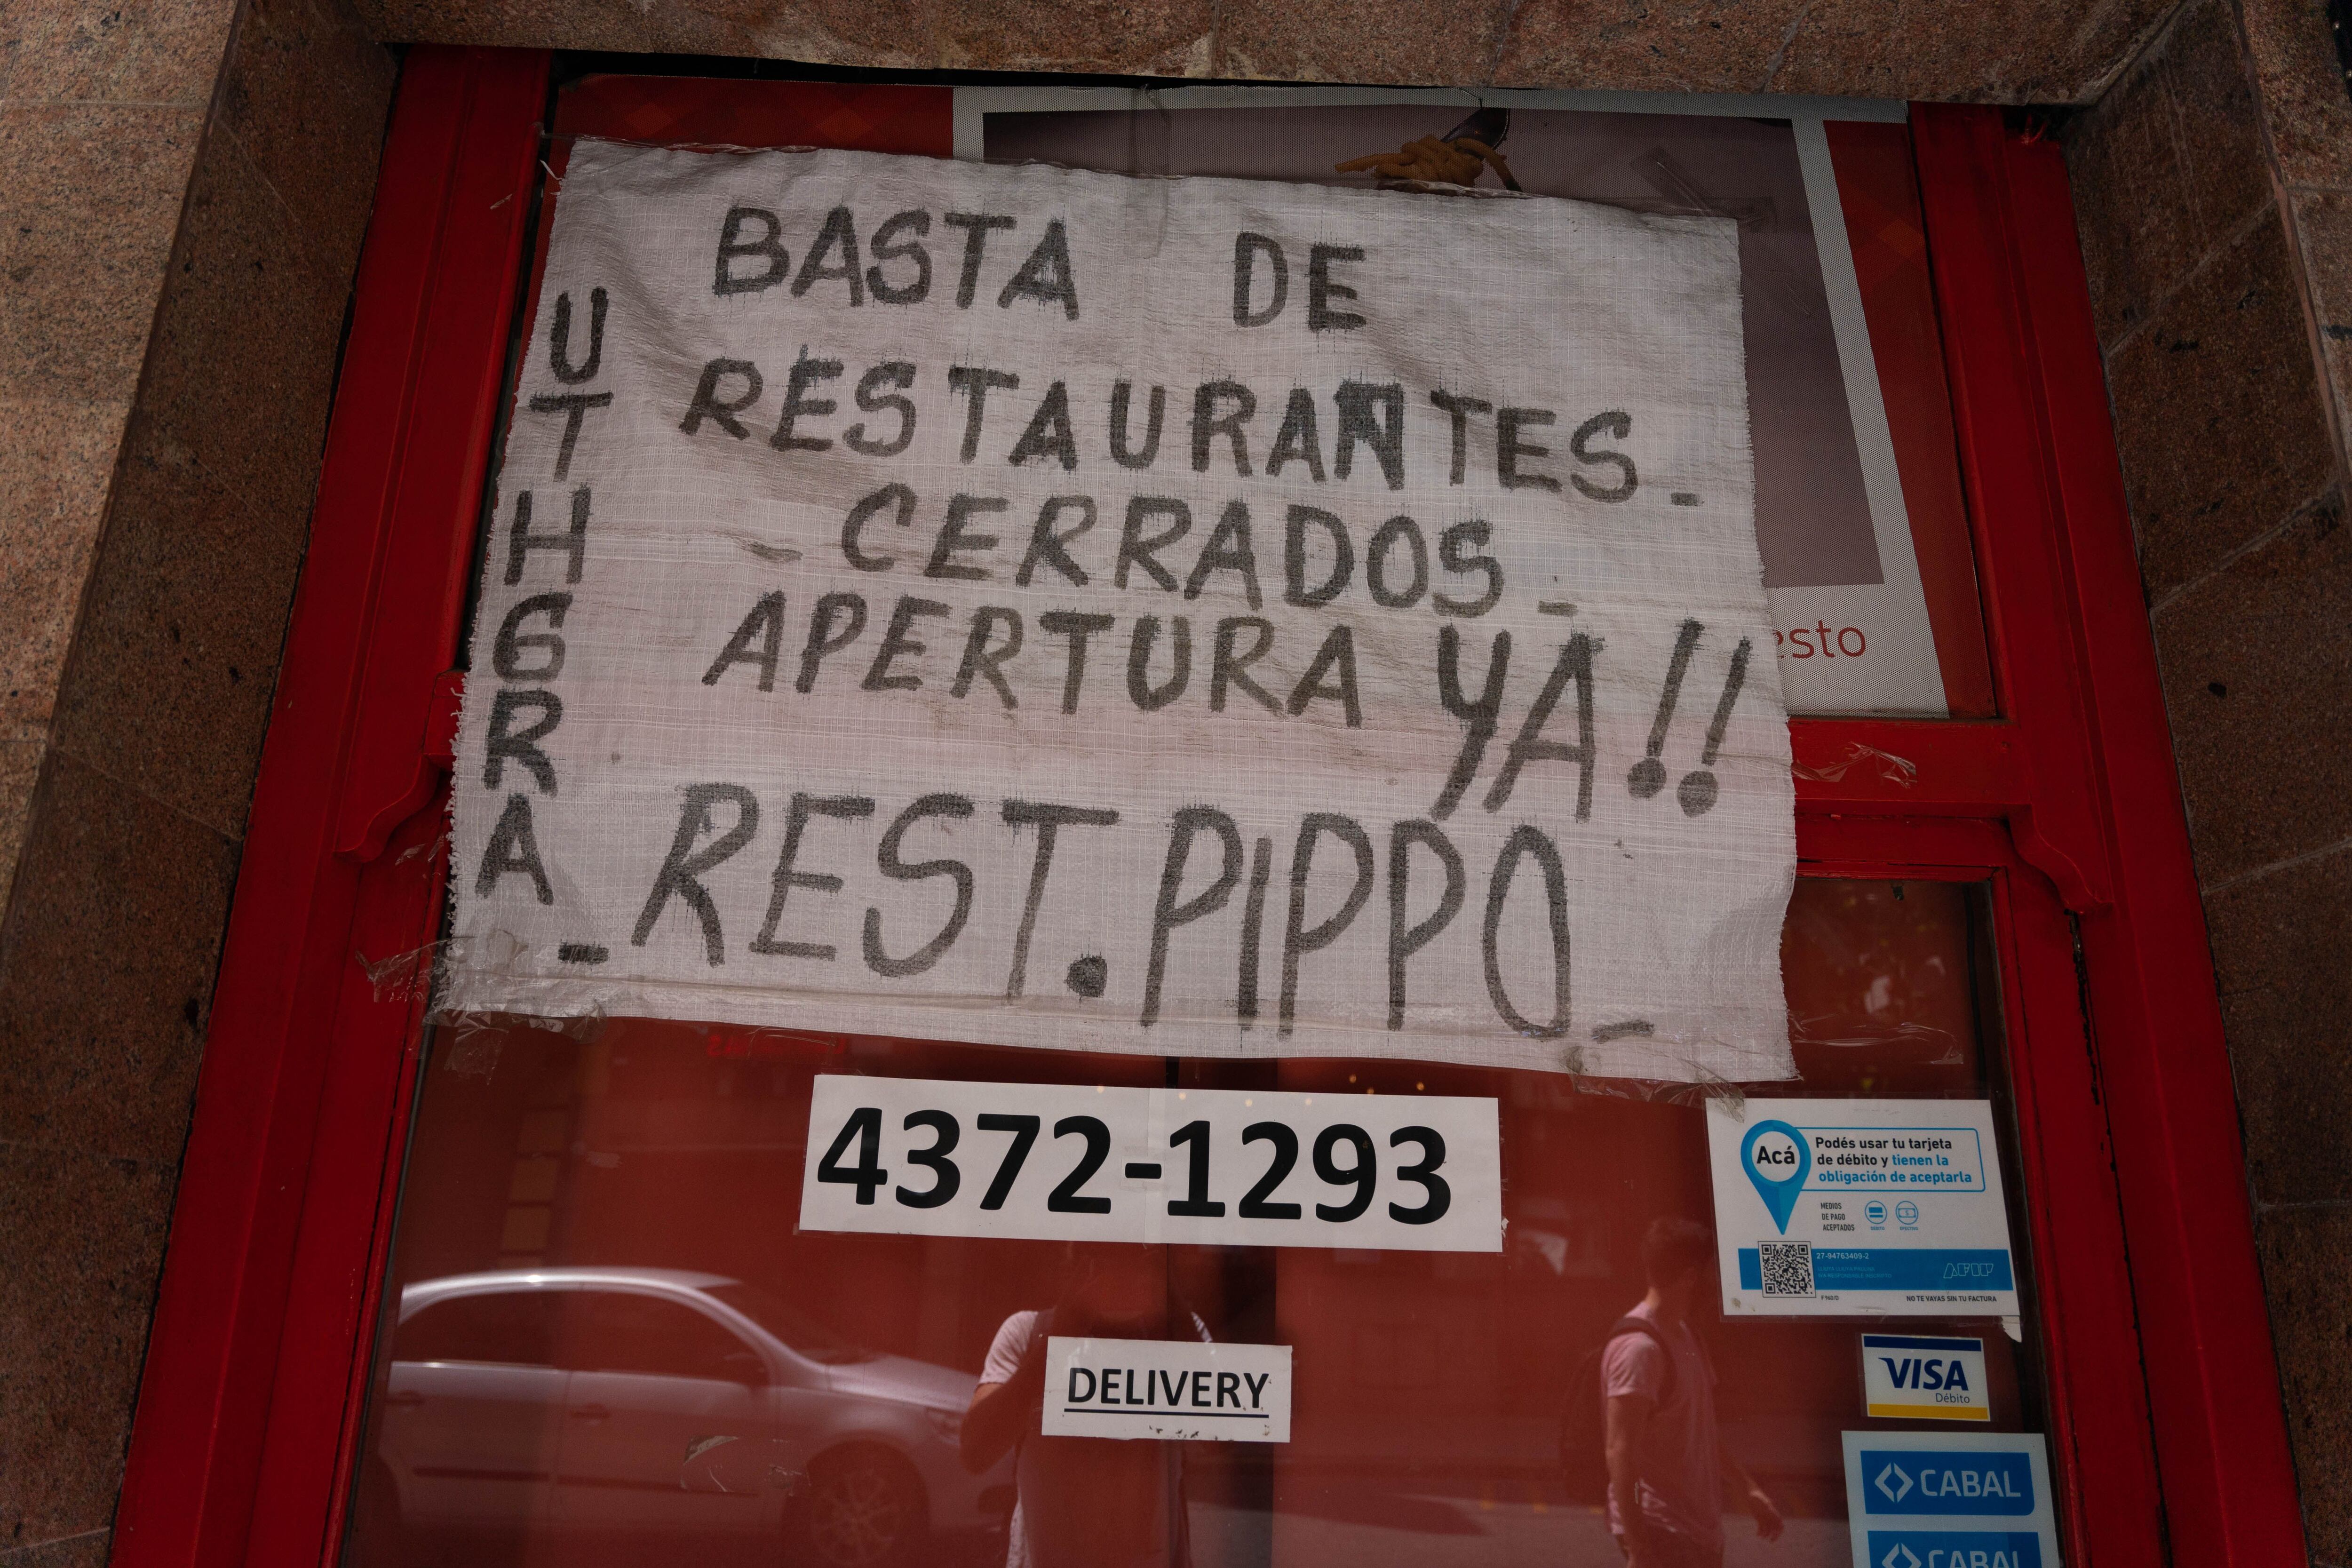 BASTA DE
RESTAURANTES_
_CERRADOS_
APERTURA YA!!
UTHGRA
_REST.PIPPO_
esto
4372-1293
DELIVERY
Acá
Podés usar tu tarjeta
de débito y tienen la
obligación de aceptarla
MEDIOS
DE PAGO
ACEPTADOS
27-94763409-2
AFIP
NO TE VAYAS SIN TU FACTURA
VISA
Débito
CABAL
CABAL